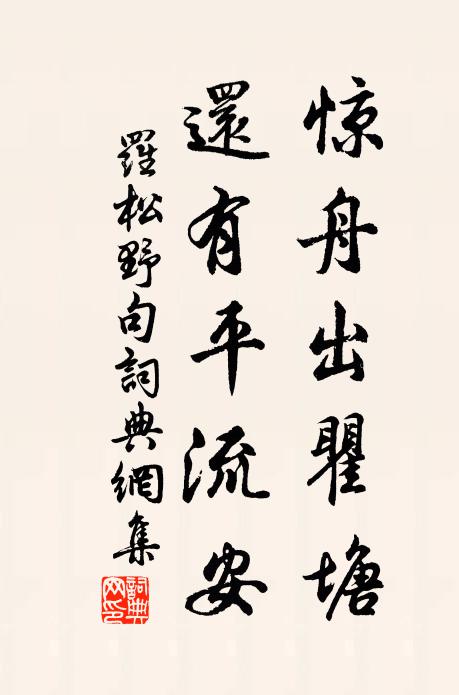 惊舟出瞿塘
還有平流安
羅松野句詞典網集
詞典網印